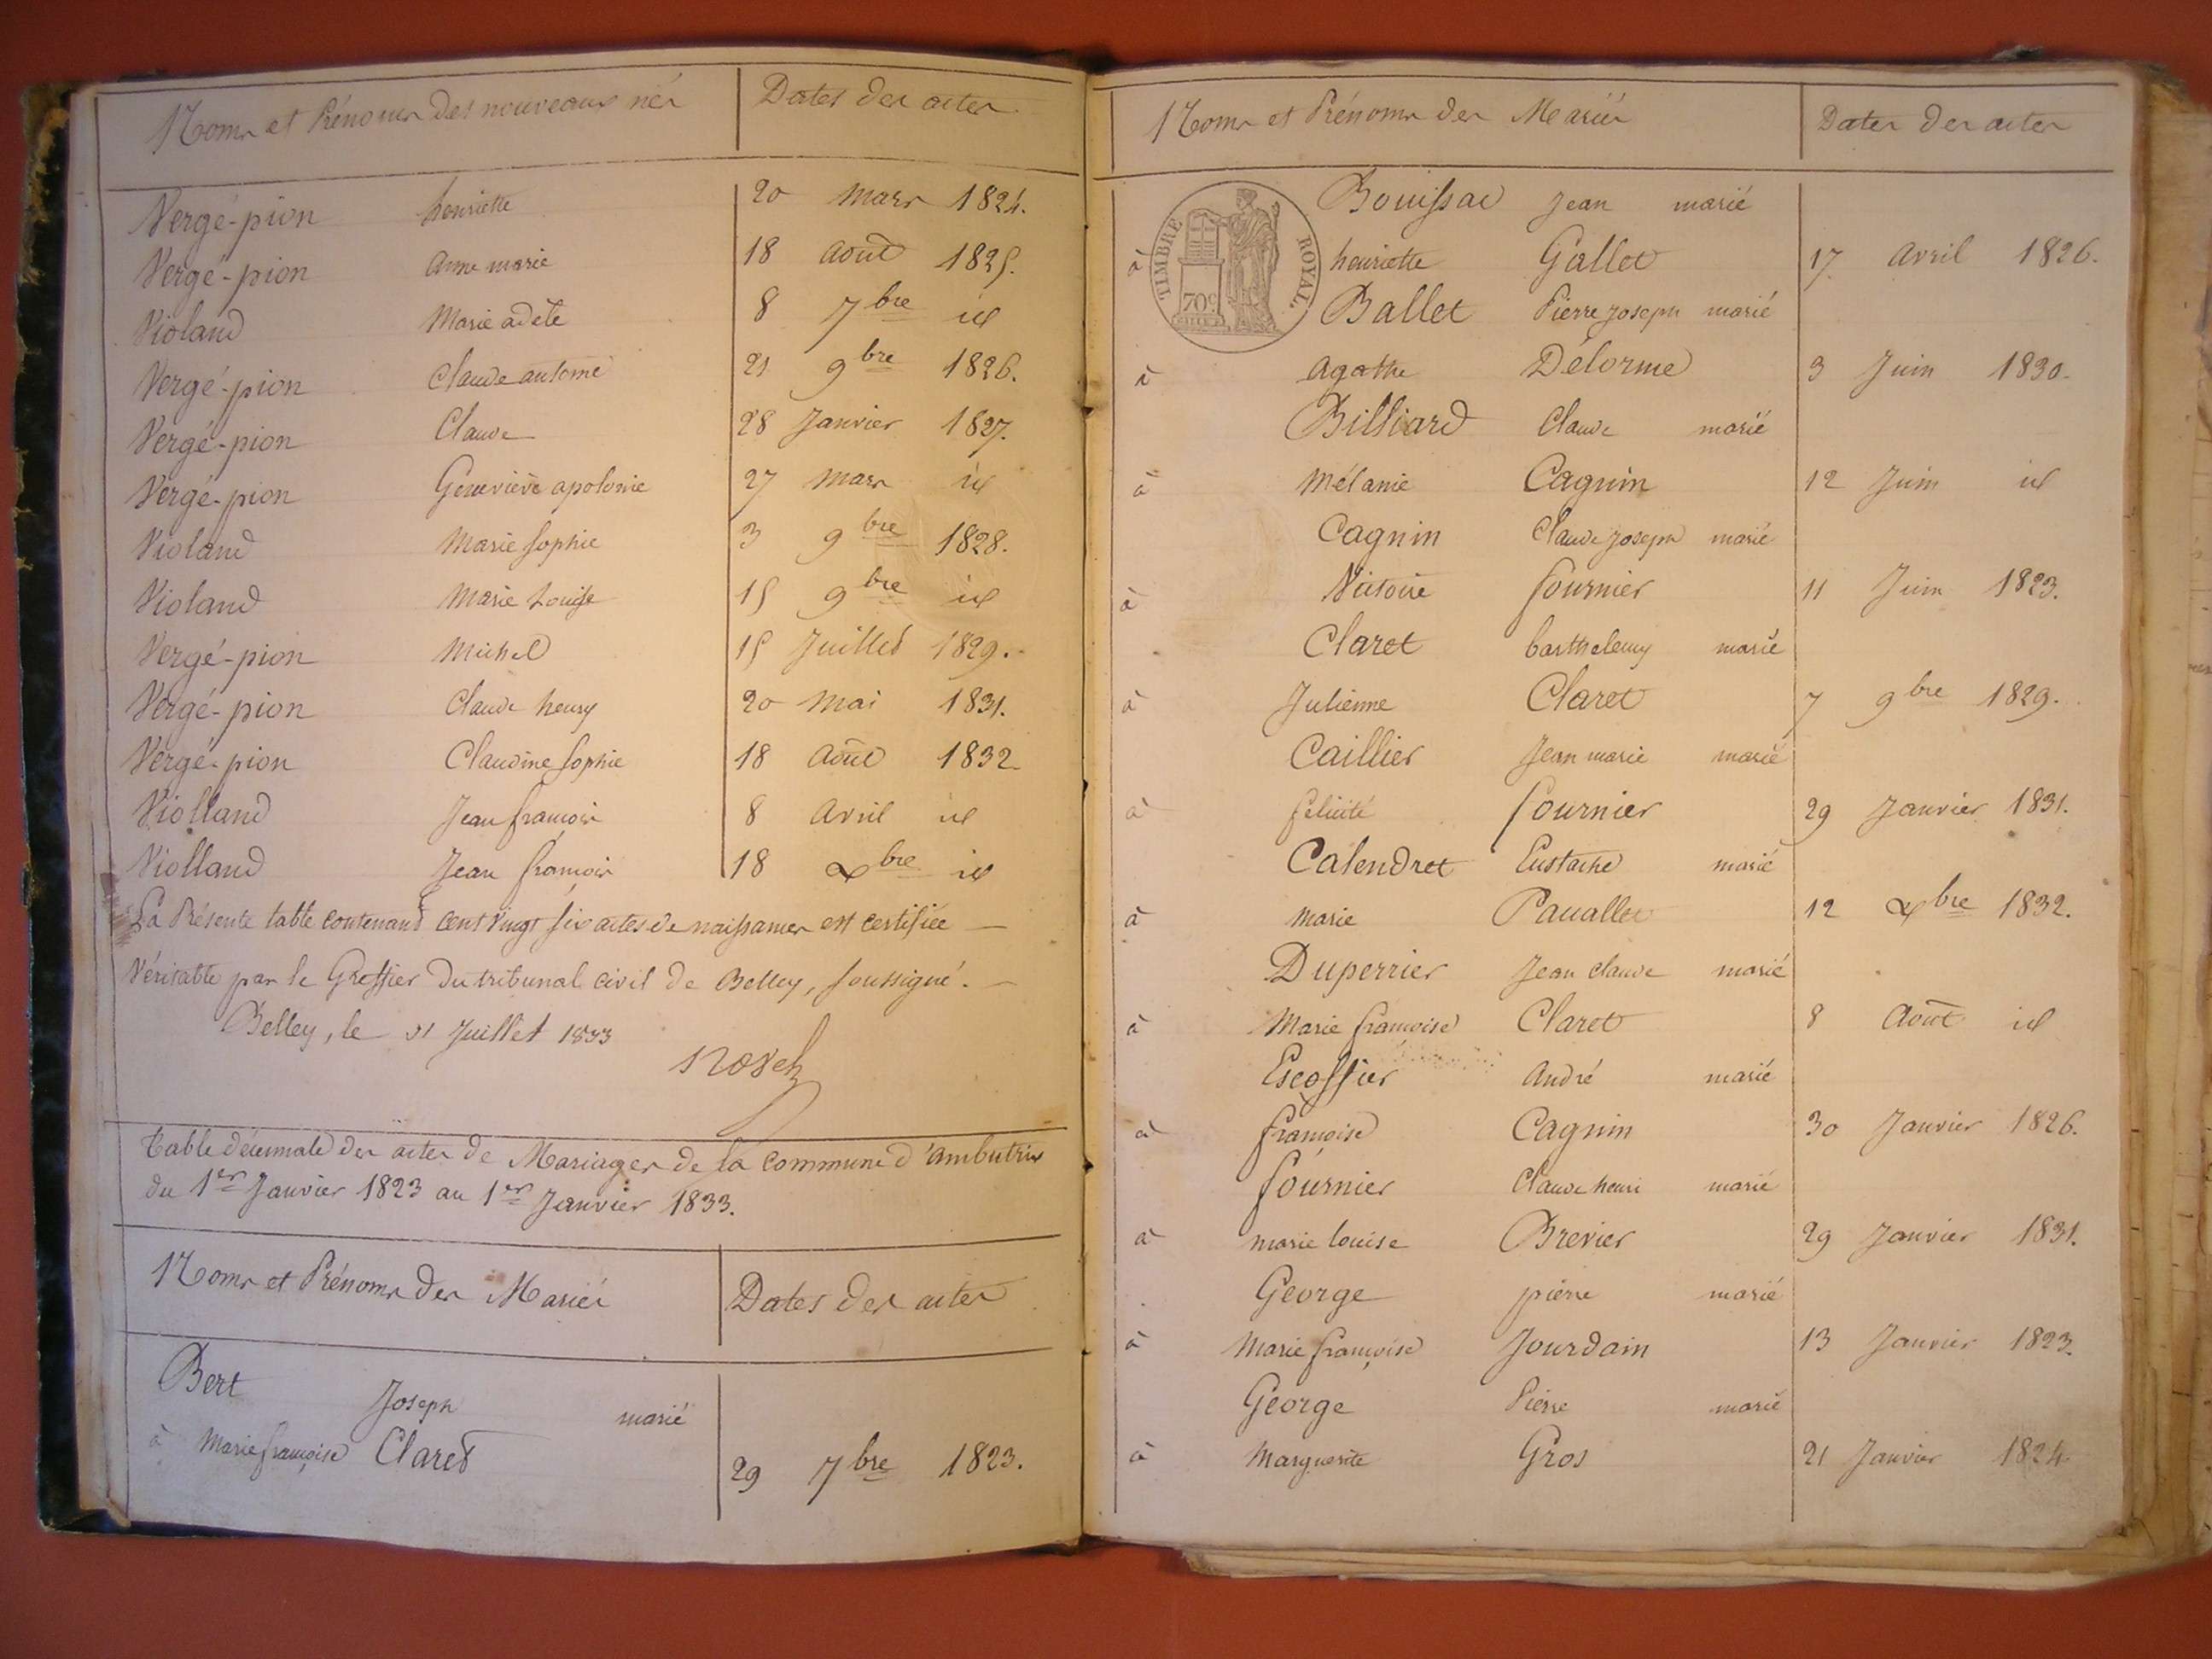 Noms et Prénoms des nouveaux nés Dates des actes
Vergé-pion henriette 20 Mars 1824.
Vergé-pion Anne marie 18 Août 1825.
Violand Marie adèle 8 7bre id
Vergé-pion Claude antoine 21 9bre 1826.
Vergé-pion Claude 28 Janvier 1827.
Vergé-pion Geneviève apolonie 27 Mars id
Violand Marie Sophie 3 9bre 1828.
Violand Marie Louise 15 9bre id
Vergé-pion Michel 15 Juillet 1829.
Vergé-pion Claude henry 20 Mai 1831.
Vergé-pion Claudine Sophie 18 Août 1832
Violland Jean françois 8 Avril id
Violland Jean françois 18 Xbre id
La Présente table contenant cent vingt six actes de naissances est certifiée
Véritable par le Greffier du tribunal civil de Belley, soussigné.
Belley, le 31 Juillet 1833
Table décennale des actes de Mariages de la commune d'Ambutrix
du 1er Janvier 1823 au 1er Janvier 1833.
Noms et Prénoms des Mariés Dates des actes
Bert Joseph marié
à Marie françoise Claret 29 7bre 1823.
Noms et Prénoms des Mariés Dates des actes
TIMBRE ROYAL.
70c
Bouissac Jean marié
à henriette Gallet 17 Avril 1826.
Ballet Pierre Joseph marié
à Agathe Délorme 3 Juin 1830.
Billiard Claude marié
à Mélanie Cagnin 12 Juin id
Cagnin Claude Joseph marié
à Victoire fournier 11 Juin 1823.
Claret barthelemy marié
à Julienne Claret 7 9bre 1829.
Caillier Jean marie marié
à félicité fournier 29 Janvier 1831.
Calendret Eustache marié
à Marie Pauallet 12 Xbre 1832.
Duperrier Jean claude marié
à Marie françoise Claret 8 Août id
Escoffier André marié
à françoise Cagnin 30 Janvier 1826.
fournier Claude henri marié
à marie louise Brevier 29 Janvier 1831.
George pierre marié
à Marie françoise Jourdain 13 Janvier 1823.
George Pierre marié
à Marguerite Gros 21 Janvier 1824